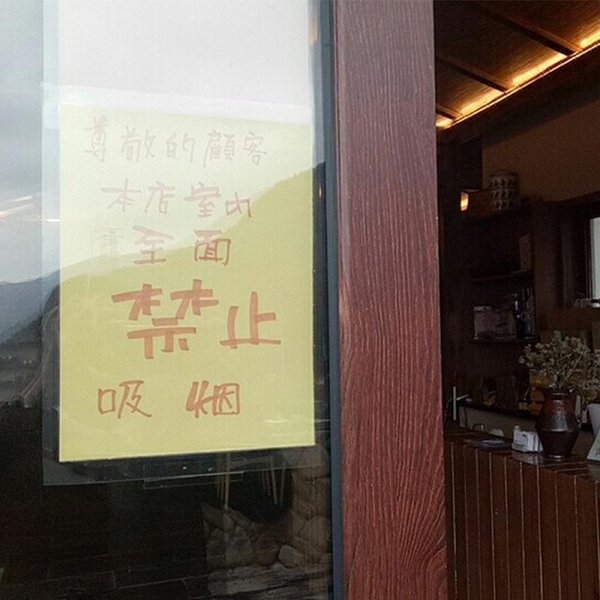 尊敬的顧客
本店室内
全面
禁止
吸烟